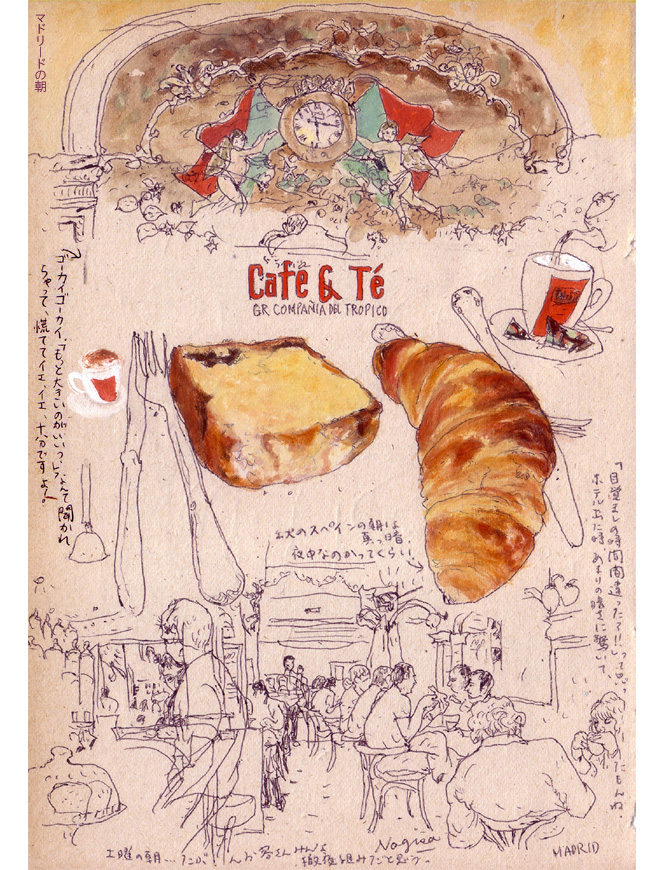 マドリードの朝
Cafe & Té
GR. COMPAÑIA DEL TROPICO
ゴーカイゴーカイ「もっと大きいのがいい？」なんて聞かれ
ちゃって、慌ててイエイエ、十分ですよ!。
スペインの朝は
真っ暗
夜中なのかってくらい
ホテル出た時 あまりの暗さに驚いて、
「目覚ましの時間間違ったァ!!」って思っ たもんね。
土曜の朝…たぶん お客さんみんな
徹夜組みだと思う
Nagisa
MADRID